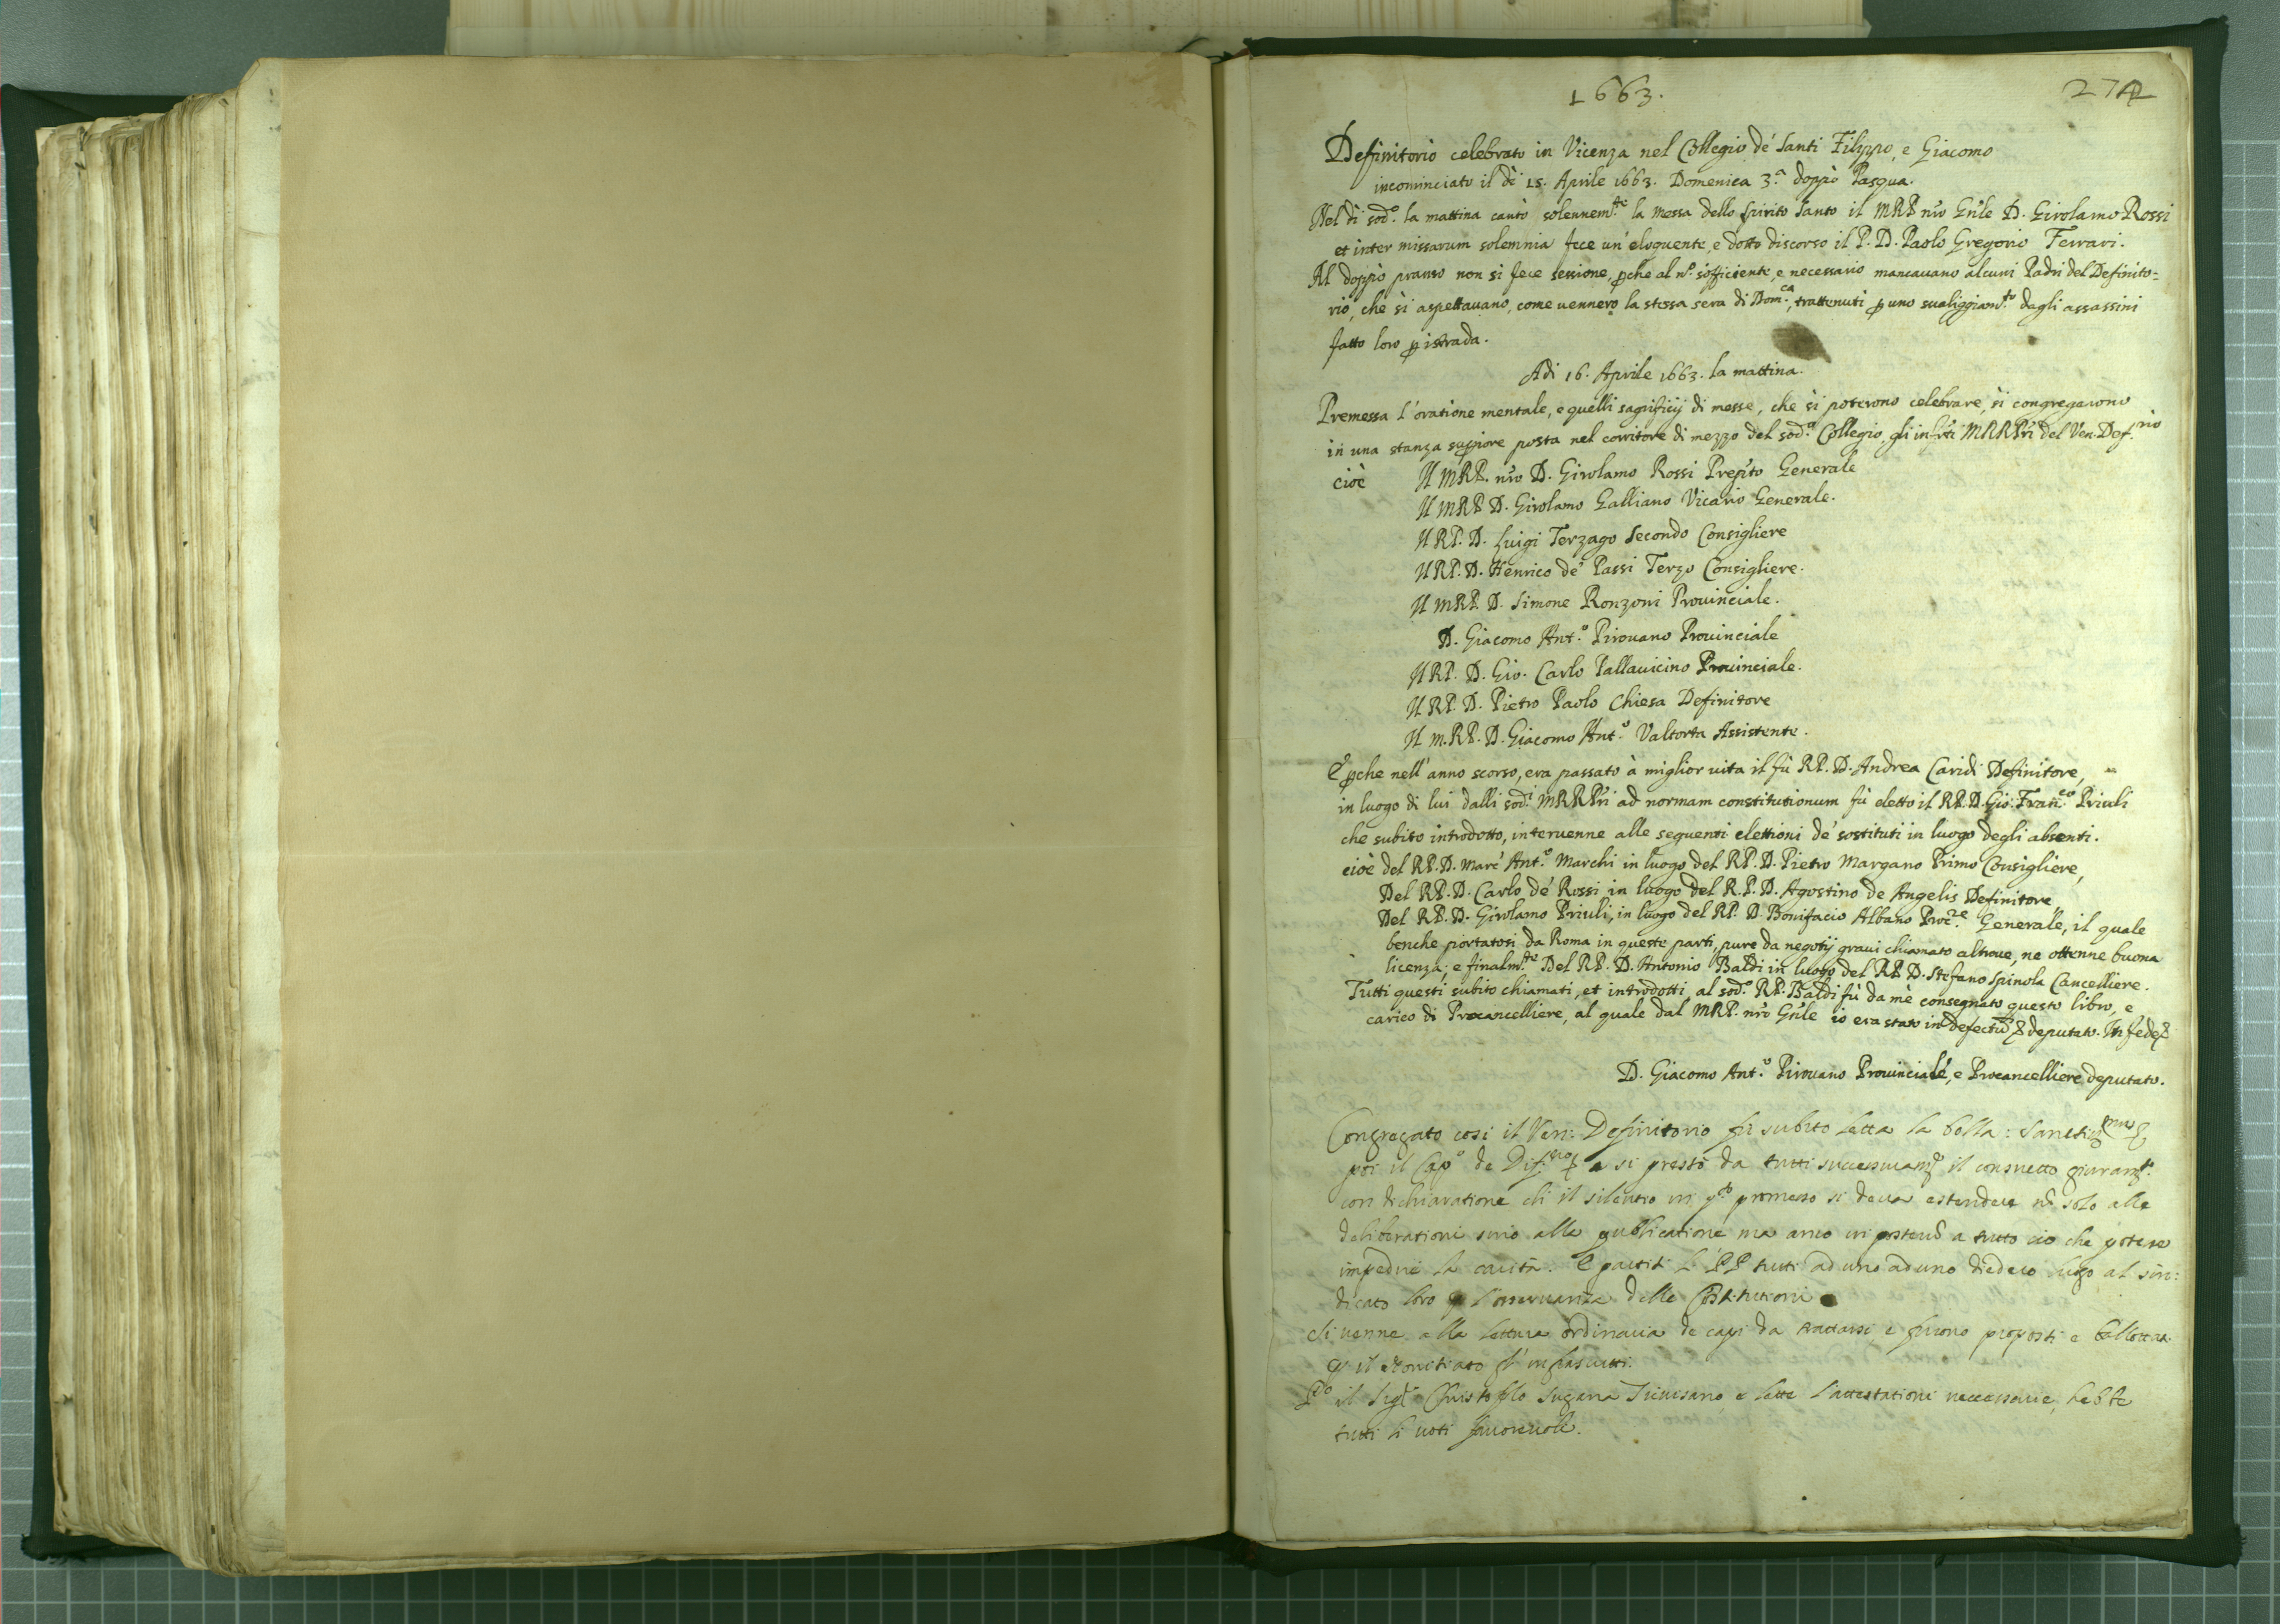 1663.
274
Definitorio celebrato in Vicenza nel Collegio de' Santi Filippo, e Giacomo
incominciato il dì 15. Aprile 1663. Domenica 3.ª doppò Pasqua.
Nel dì sod.º la mattina cantò solennem.te la Messa dello Spirito Santo il MRP nro Gnle D. Girolamo Rossi
et inter missarum solemnia fece un' eloquente e dotto discorso il P. D. Paolo Gregorio Ferrari.
Al doppò pranso non si fece sessione, pche al nº sofficiente, e necessario mancauano alcuni Padri del Definito=
rio, che si aspettauano, come uennero la stessa sera di Dom.ca, trattenuti p uno sualiggiam.to degli assassini
fatto loro p istrada.
Adi 16. Aprile 1663. la mattina.
Premessa l'oratione mentale, e quelli sagrificij di messe, che si poterono celebrare, si congregarono
in una stanza supiore posta nel corritore di mezzo del sod.º Collegio gli infrti MRRPri del Ven. Def.rio
cioè Il MRP. nro D. Girolamo Rossi Prepto Generale
Il MRP D. Girolamo Galliano Vicario Generale.
Il RP. D. Luigi Terzago Secondo Consigliere
Il RP. D. Henrico de' Passi Terzo Consigliere.
Il MRP. D. Simone Ronzoni Prouinciale.
D. Giacomo Ant.º Pirouano Prouinciale
Il RP. D. Gio. Carlo Pallauicino Prouinciale.
Il RP. D. Pietro Paolo Chiesa Definitore
Il M.RP. D. Giacomo Ant.º Valtorta Assistente.
E pche nell' anno scorso, era passato à miglior uita il fù RP. D. Andrea Caridi Definitore,
in luogo di lui dalli sod.i MRRPri ad normam constitutionum fù eletto il RP. D. Gio: Fran.co Priuli
che subito introdotto, interuenne alle seguenti elettioni de' sostituti in luogo degli absenti.
cioè del RP. D. Marc' Ant.º Marchi in luogo del RP. D. Pietro Margano Primo Consigliere,
Del RP. D. Carlo de' Rossi in luogo del R.P. D. Agostino de Angelis Definitore,
Del RP. D. Girolamo Priuli, in luogo del RP. D. Bonifacio Albano Proc.re Generale, il quale
benche portatosi da Roma in queste parti, pure da negotij graui chiamato altroue, ne ottenne buona
licenza; e finalm.te Del RP. D. Antonio Baldi in luogo del RP D. Stefano Spinola Cancelliere.
Tutti questi subito chiamati, et introdotti al sod.º RP. Baldi fù da mè consegnato questo libro, e
carico di Procancelliere, al quale dal MRP. nro Gnle io era stato in defectu deputato. In fede
D. Giacomo Ant.º Pirouano Prouinciale, e Procancelliere deputato.
Congregato cosi il Ven: Definitorio fu subito letta la bolla:
poi il Cap.º de e si prestò da tutti il consueto giuram.to
con dichiaratione ch il silentio in q.to promesso si deua estendere nō solo alle
deliberationi sino alla publicatione ma anco in a tutto cio che potesse
impedire la carità. E partiti li PP tutti ad uno ad uno diedero luogo al sin:
dicato loro p l'osseruanza delle Constitutioni
Si uenne alla lettura ordinaria de capi da trattarsi e furono proposti e ballottati
p il Nouitiato gl' infrascritti.
P.º il Sig.r Christoforo Sugana Triuisano e lette l'attestationi necessarie, hebbe
tutti li uoti fauoreuoli.